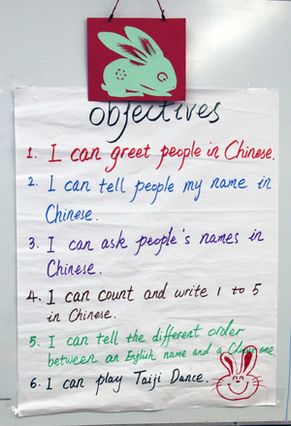 objectives
1. I can greet people in Chinese.
2. I can tell people my name in
Chinese.
3. I can ask people's names in
Chinese.
4. I can count and write 1 to 5
in Chinese.
5. I can tell the different order
between an English name and a Chinese one.
6. I can play Taiji Dance.